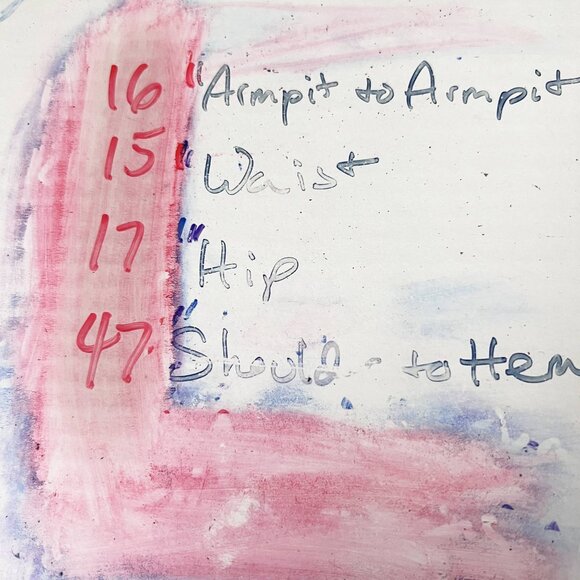 16" Armpit to Armpit
15" Waist
17" Hip
47" Should - to Hem